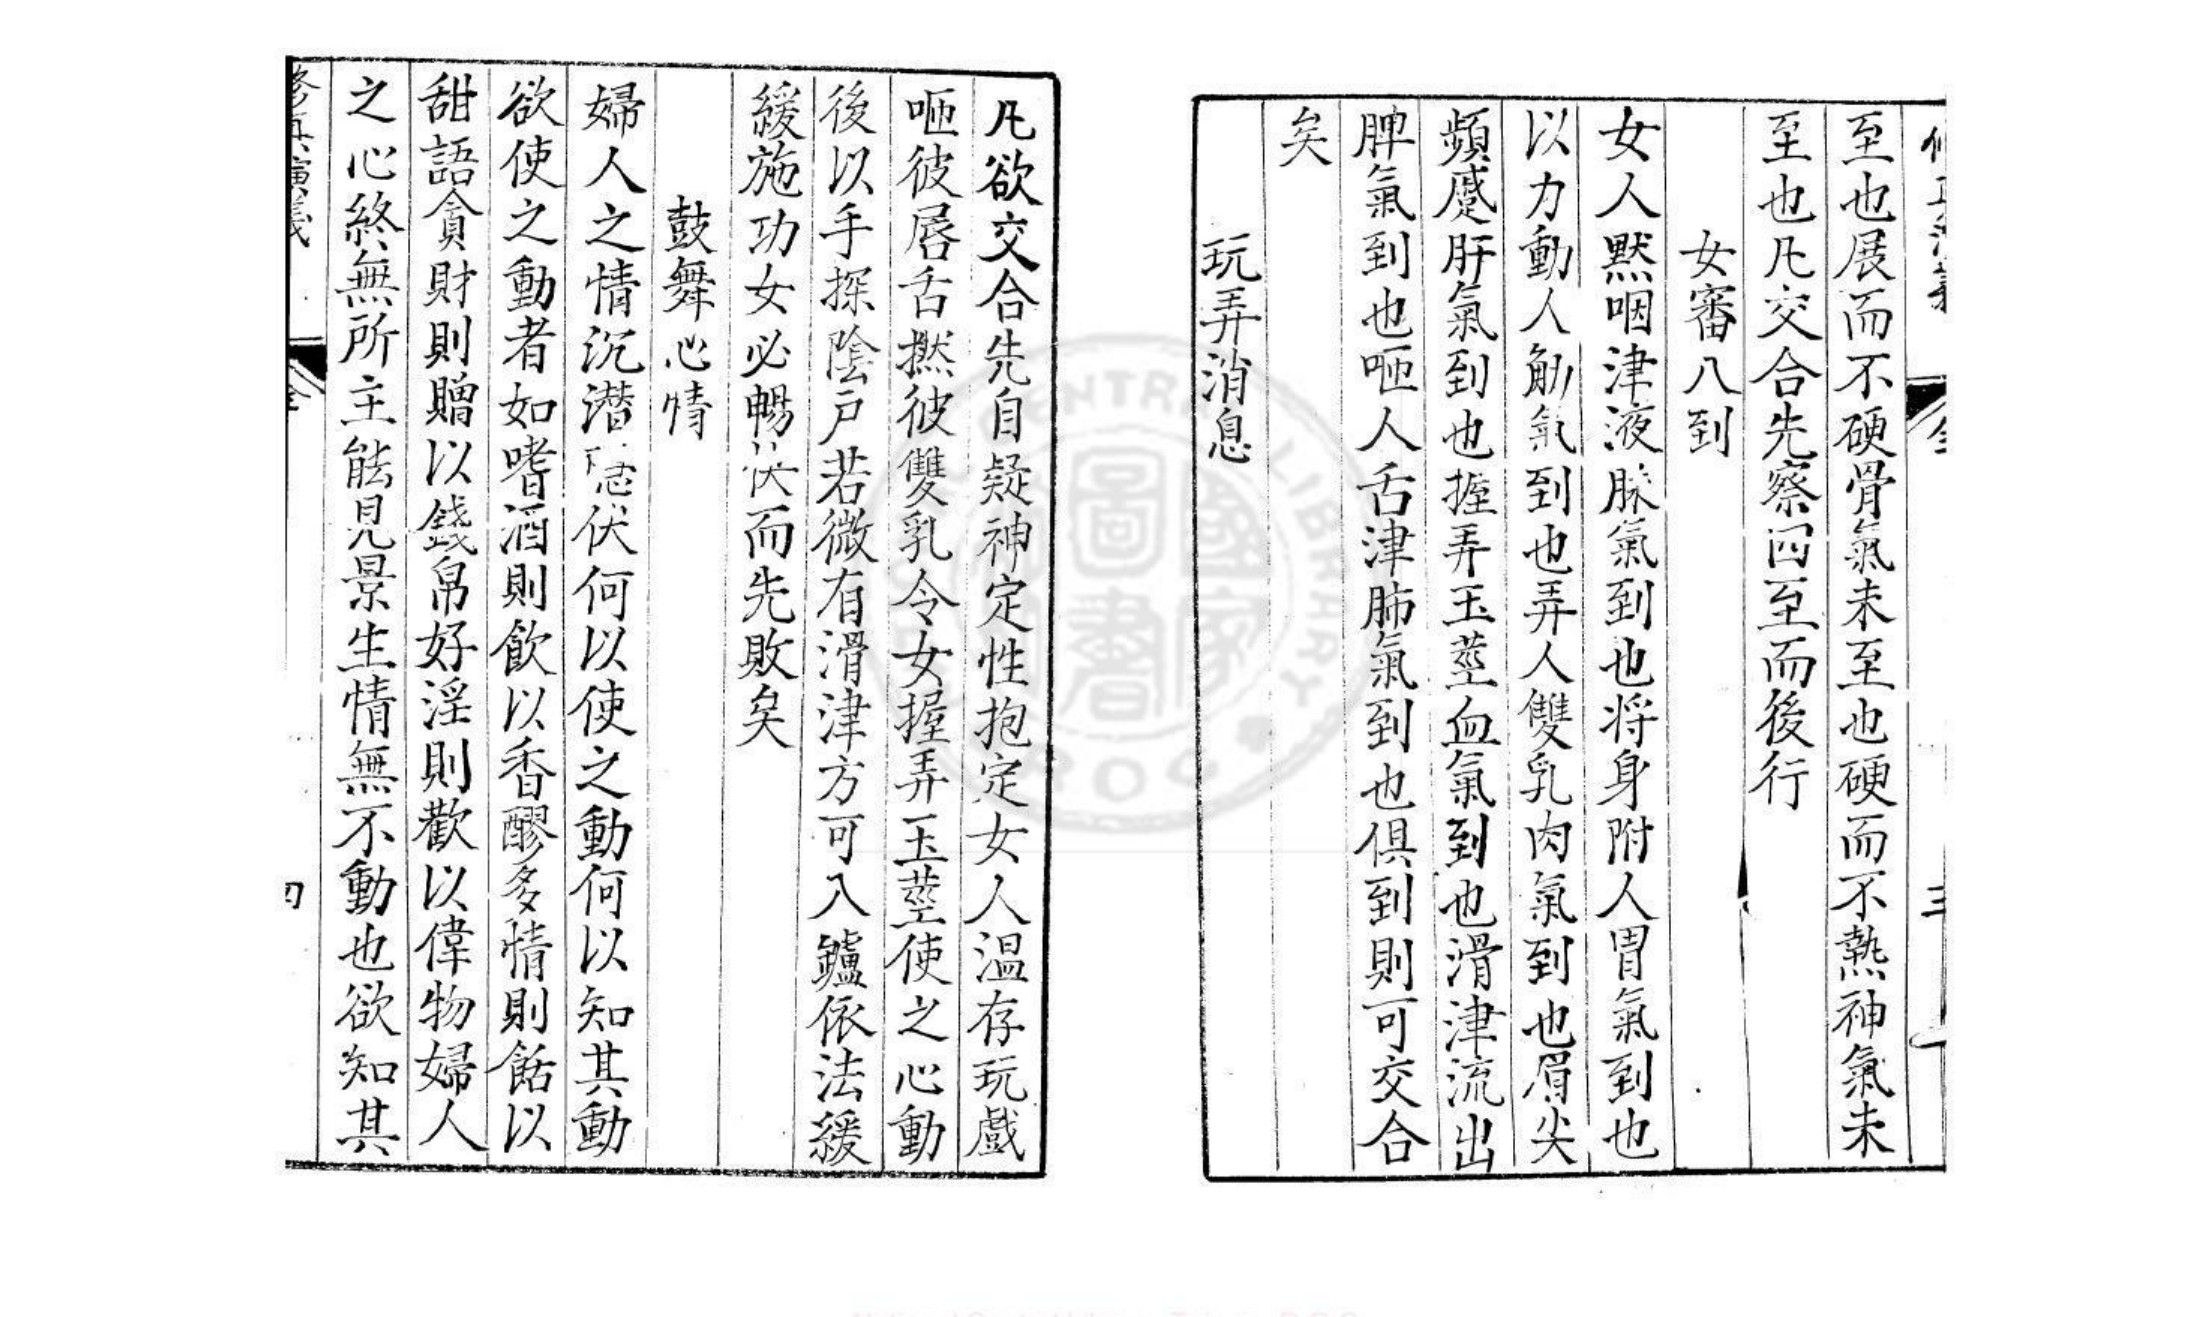 至也展而不硬骨氣未至也硬而不熱神氣未
至也凡交合先察四至而後行
女審八到
女人黙咽津液脉氣到也将身附人胃氣到也
以力動人觔氣到也弄人雙乳肉氣到也眉尖
頻蹙肝氣到也握弄玉莖血氣到也滑津流出
脾氣到也咂人舌津肺氣到也俱到則可交合
矣
玩弄消息
凡欲交合先自疑神定性抱定女人温存玩戲
咂彼唇舌撚彼雙乳令女握弄玉莖使之心動
後以手探陰户若微有滑津方可入鑪依法緩
緩施功女必暢伏而先敗矣
鼓舞心情
婦人之情沉潜隠伏何以使之動何以知其動
欲使之動者如嗜酒則飲以香醪多情則餂以
甜語貪財則贈以錢帛好淫則歡以偉物婦人
之心終無所主能見景生情無不動也欲知其
修真演義
全
四
CENTRAL LIBRARY
ROC
國家圖書